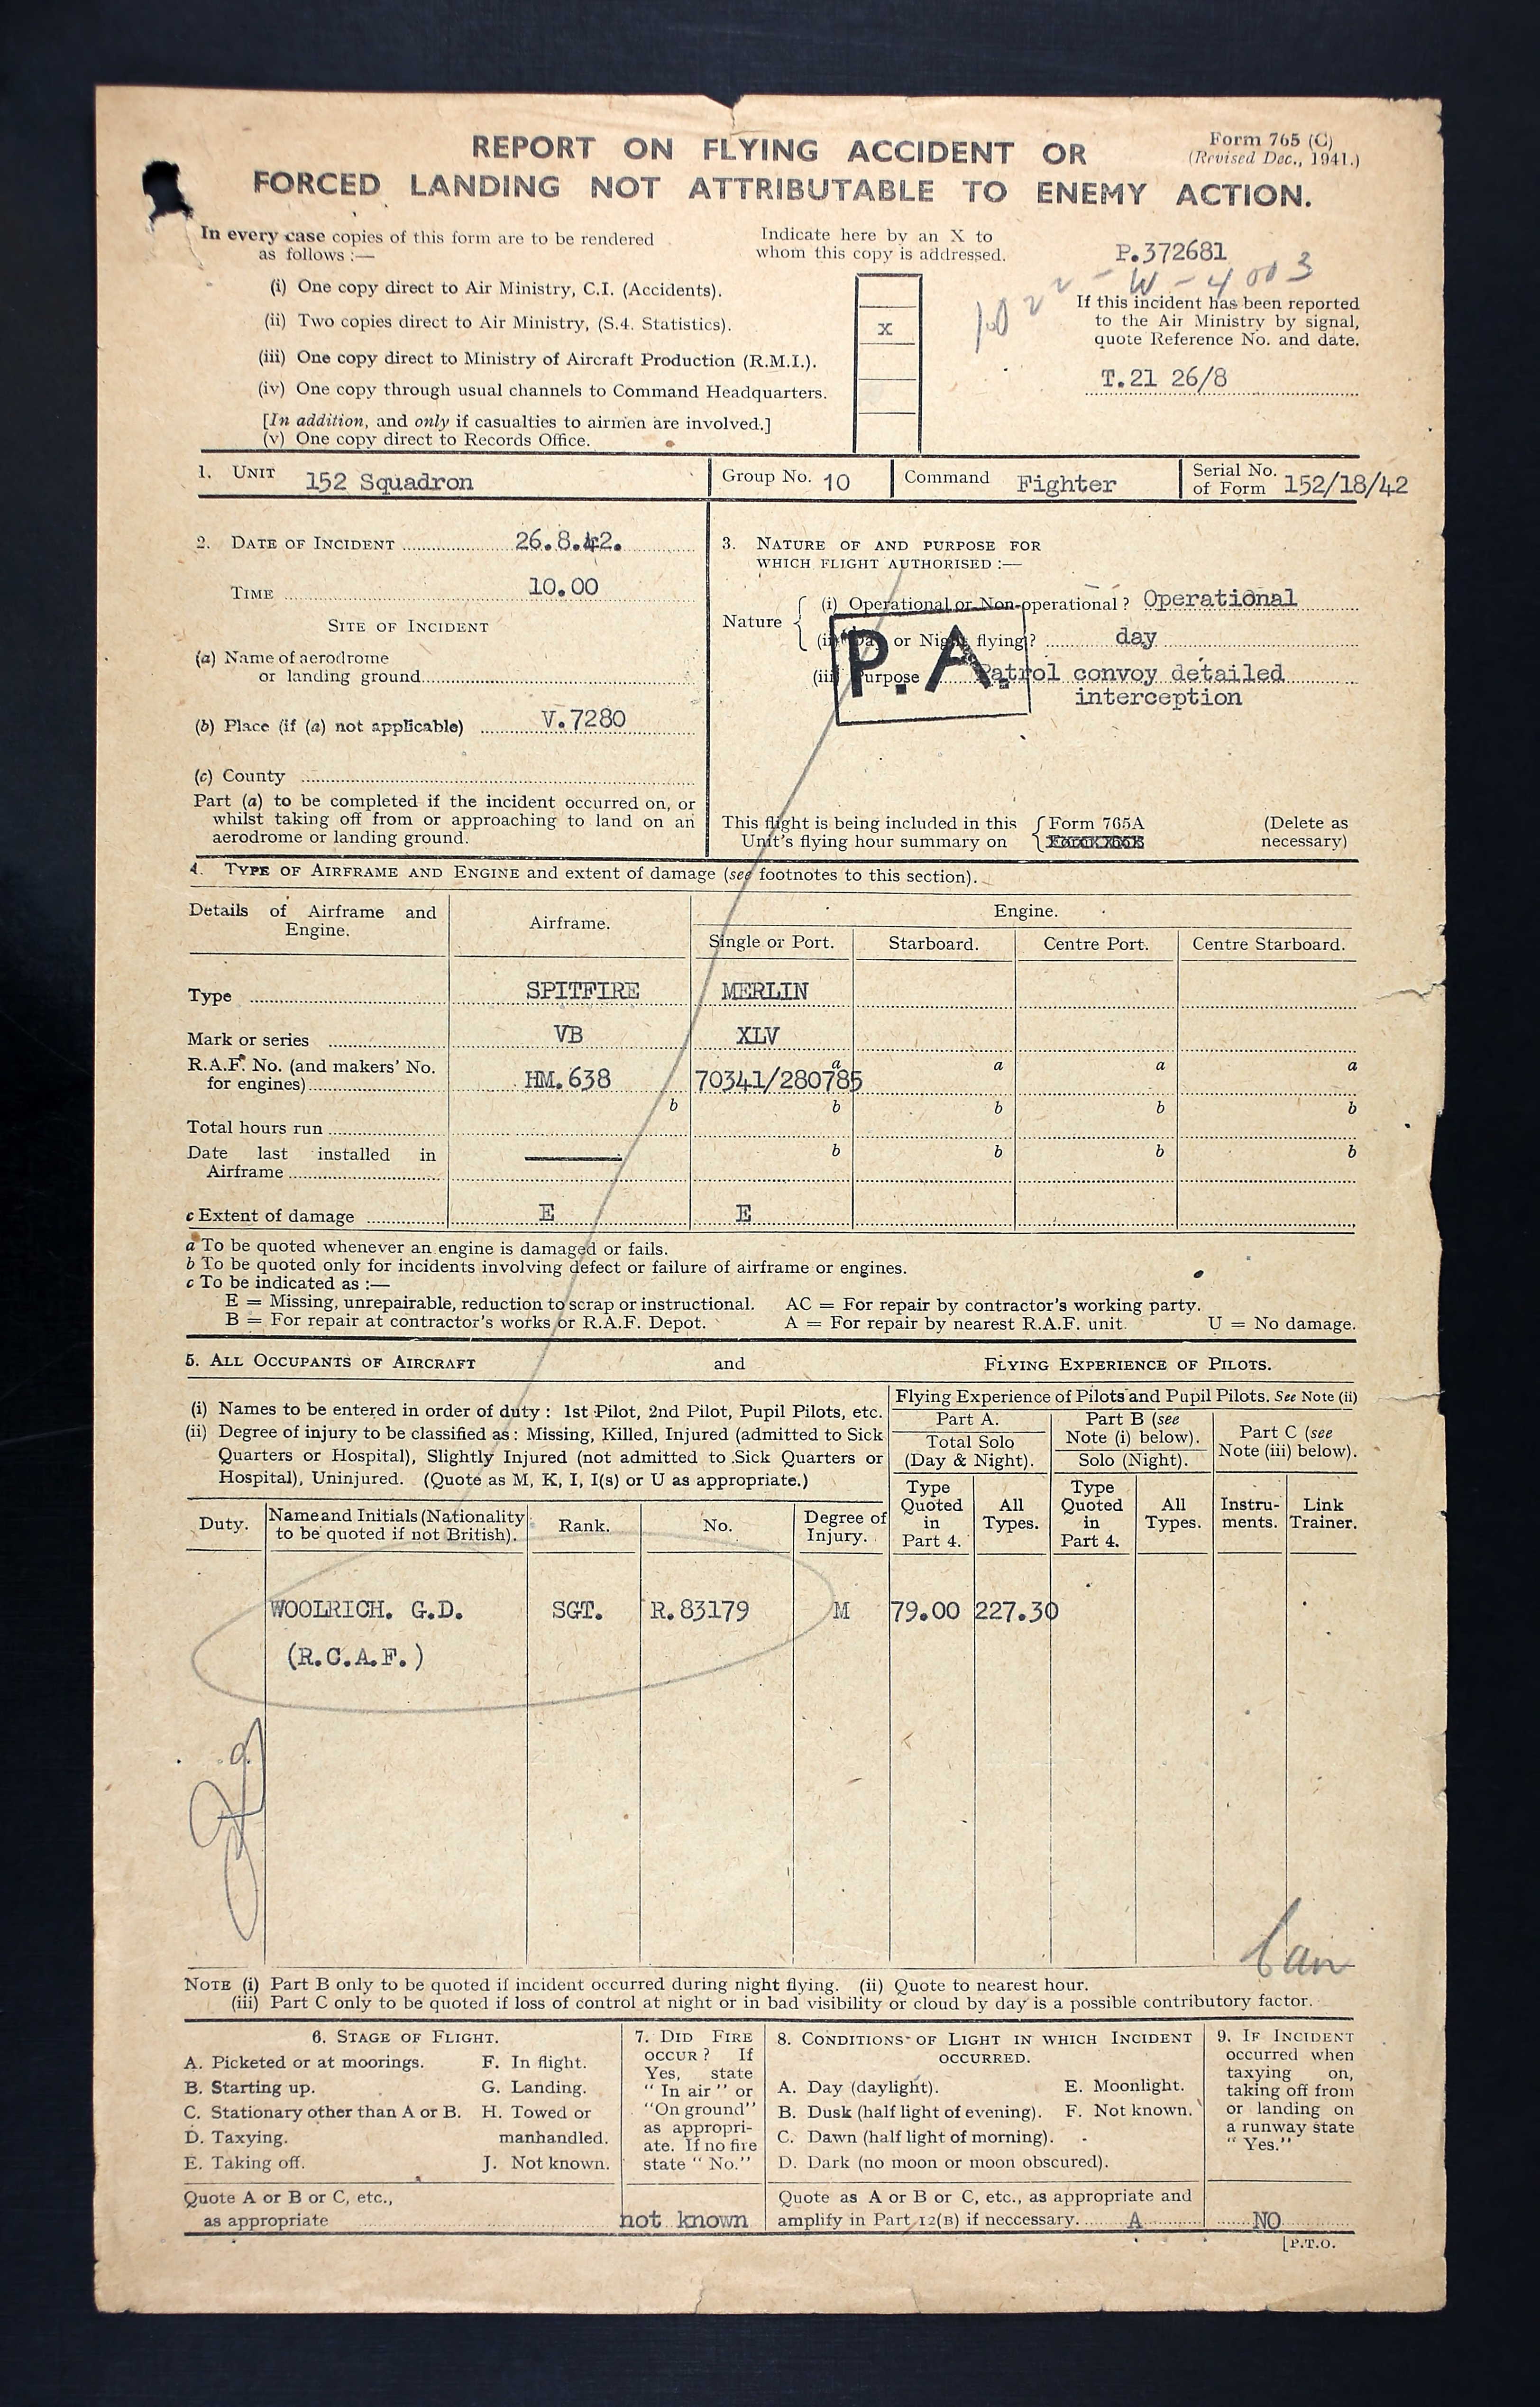 REPORT ON FLYING ACCIDENT OR
FORCED LANDING NOT ATTRIBUTABLE TO ENEMY ACTION.
Form 765 (C)
(Revised Dec., 1941.)
In every case copies of this form are to be rendered
as follows :—
(i) One copy direct to Air Ministry, C.I. (Accidents).
(ii) Two copies direct to Air Ministry, (S.4. Statistics).
(iii) One copy direct to Ministry of Aircraft Production (R.M.I.).
(iv) One copy through usual channels to Command Headquarters.
[In addition, and only if casualties to airmen are involved.]
(v) One copy direct to Records Office.
Indicate here by an X to
whom this copy is addressed.
x
P.372681
W - 4003
If this incident has been reported
to the Air Ministry by signal,
quote Reference No. and date.
T.21 26/8
1. UNIT 152 Squadron
Group No. 10
Command Fighter
Serial No.
of Form 152/18/42
2. DATE OF INCIDENT 26.8.42.
TIME 10.00
SITE OF INCIDENT
(a) Name of aerodrome
or landing ground
(b) Place (if (a) not applicable) V.7280
(c) County
Part (a) to be completed if the incident occurred on, or
whilst taking off from or approaching to land on an
aerodrome or landing ground.
3. NATURE OF AND PURPOSE FOR
WHICH FLIGHT AUTHORISED :—
Nature
(i) Operational or Non-operational ? Operational
(ii) Day or Night flying ? day
(iii) Purpose Patrol convoy detailed
interception
P.A.
This flight is being included in this
Unit's flying hour summary on
Form 765A
(Delete as
necessary)
4. TYPE OF AIRFRAME AND ENGINE and extent of damage (see footnotes to this section).
Details of Airframe and
Engine.
Airframe.
Engine.
Single or Port. Starboard. Centre Port. Centre Starboard.
Type SPITFIRE MERLIN
Mark or series VB XLV
R.A.F. No. (and makers' No.
for engines) HM.638 70341/280785
a a a a
b b b b b
Total hours run
Date last installed in
Airframe
b b b b
c Extent of damage E E
a To be quoted whenever an engine is damaged or fails.
b To be quoted only for incidents involving defect or failure of airframe or engines.
c To be indicated as :—
E = Missing, unrepairable, reduction to scrap or instructional. AC = For repair by contractor's working party.
B = For repair at contractor's works or R.A.F. Depot. A = For repair by nearest R.A.F. unit. U = No damage.
5. ALL OCCUPANTS OF AIRCRAFT and FLYING EXPERIENCE OF PILOTS.
(i) Names to be entered in order of duty : 1st Pilot, 2nd Pilot, Pupil Pilots, etc.
(ii) Degree of injury to be classified as : Missing, Killed, Injured (admitted to Sick
Quarters or Hospital), Slightly Injured (not admitted to Sick Quarters or
Hospital), Uninjured. (Quote as M, K, I, I(s) or U as appropriate.)
Flying Experience of Pilots and Pupil Pilots. See Note (ii)
Part A.
Total Solo
(Day & Night).
Part B (see
Note (i) below).
Solo (Night).
Part C (see
Note (iii) below).
Duty.
Name and Initials (Nationality
to be quoted if not British).
Rank.
No.
Degree of
Injury.
Type
Quoted
in
Part 4.
All
Types.
Type
Quoted
in
Part 4.
All
Types.
Instru-
ments.
Link
Trainer.
WOOLRICH. G.D. SGT. R.83179 M 79.00 227.30
(R.C.A.F.)
NOTE (i) Part B only to be quoted if incident occurred during night flying. (ii) Quote to nearest hour.
(iii) Part C only to be quoted if loss of control at night or in bad visibility or cloud by day is a possible contributory factor.
6. STAGE OF FLIGHT.
A. Picketed or at moorings.
B. Starting up.
C. Stationary other than A or B.
D. Taxying.
E. Taking off.
F. In flight.
G. Landing.
H. Towed or
manhandled.
J. Not known.
Quote A or B or C, etc.,
as appropriate
7. DID FIRE
OCCUR ? If
Yes, state
"In air" or
"On ground"
as appropri-
ate. If no fire
state "No."
not known
8. CONDITIONS OF LIGHT IN WHICH INCIDENT
OCCURRED.
A. Day (daylight).
B. Dusk (half light of evening).
C. Dawn (half light of morning).
D. Dark (no moon or moon obscured).
E. Moonlight.
F. Not known.
Quote as A or B or C, etc., as appropriate and
amplify in Part 12(B) if neccessary. A
9. IF INCIDENT
occurred when
taxying on,
taking off from
or landing on
a runway state
"Yes."
NO
[P.T.O.